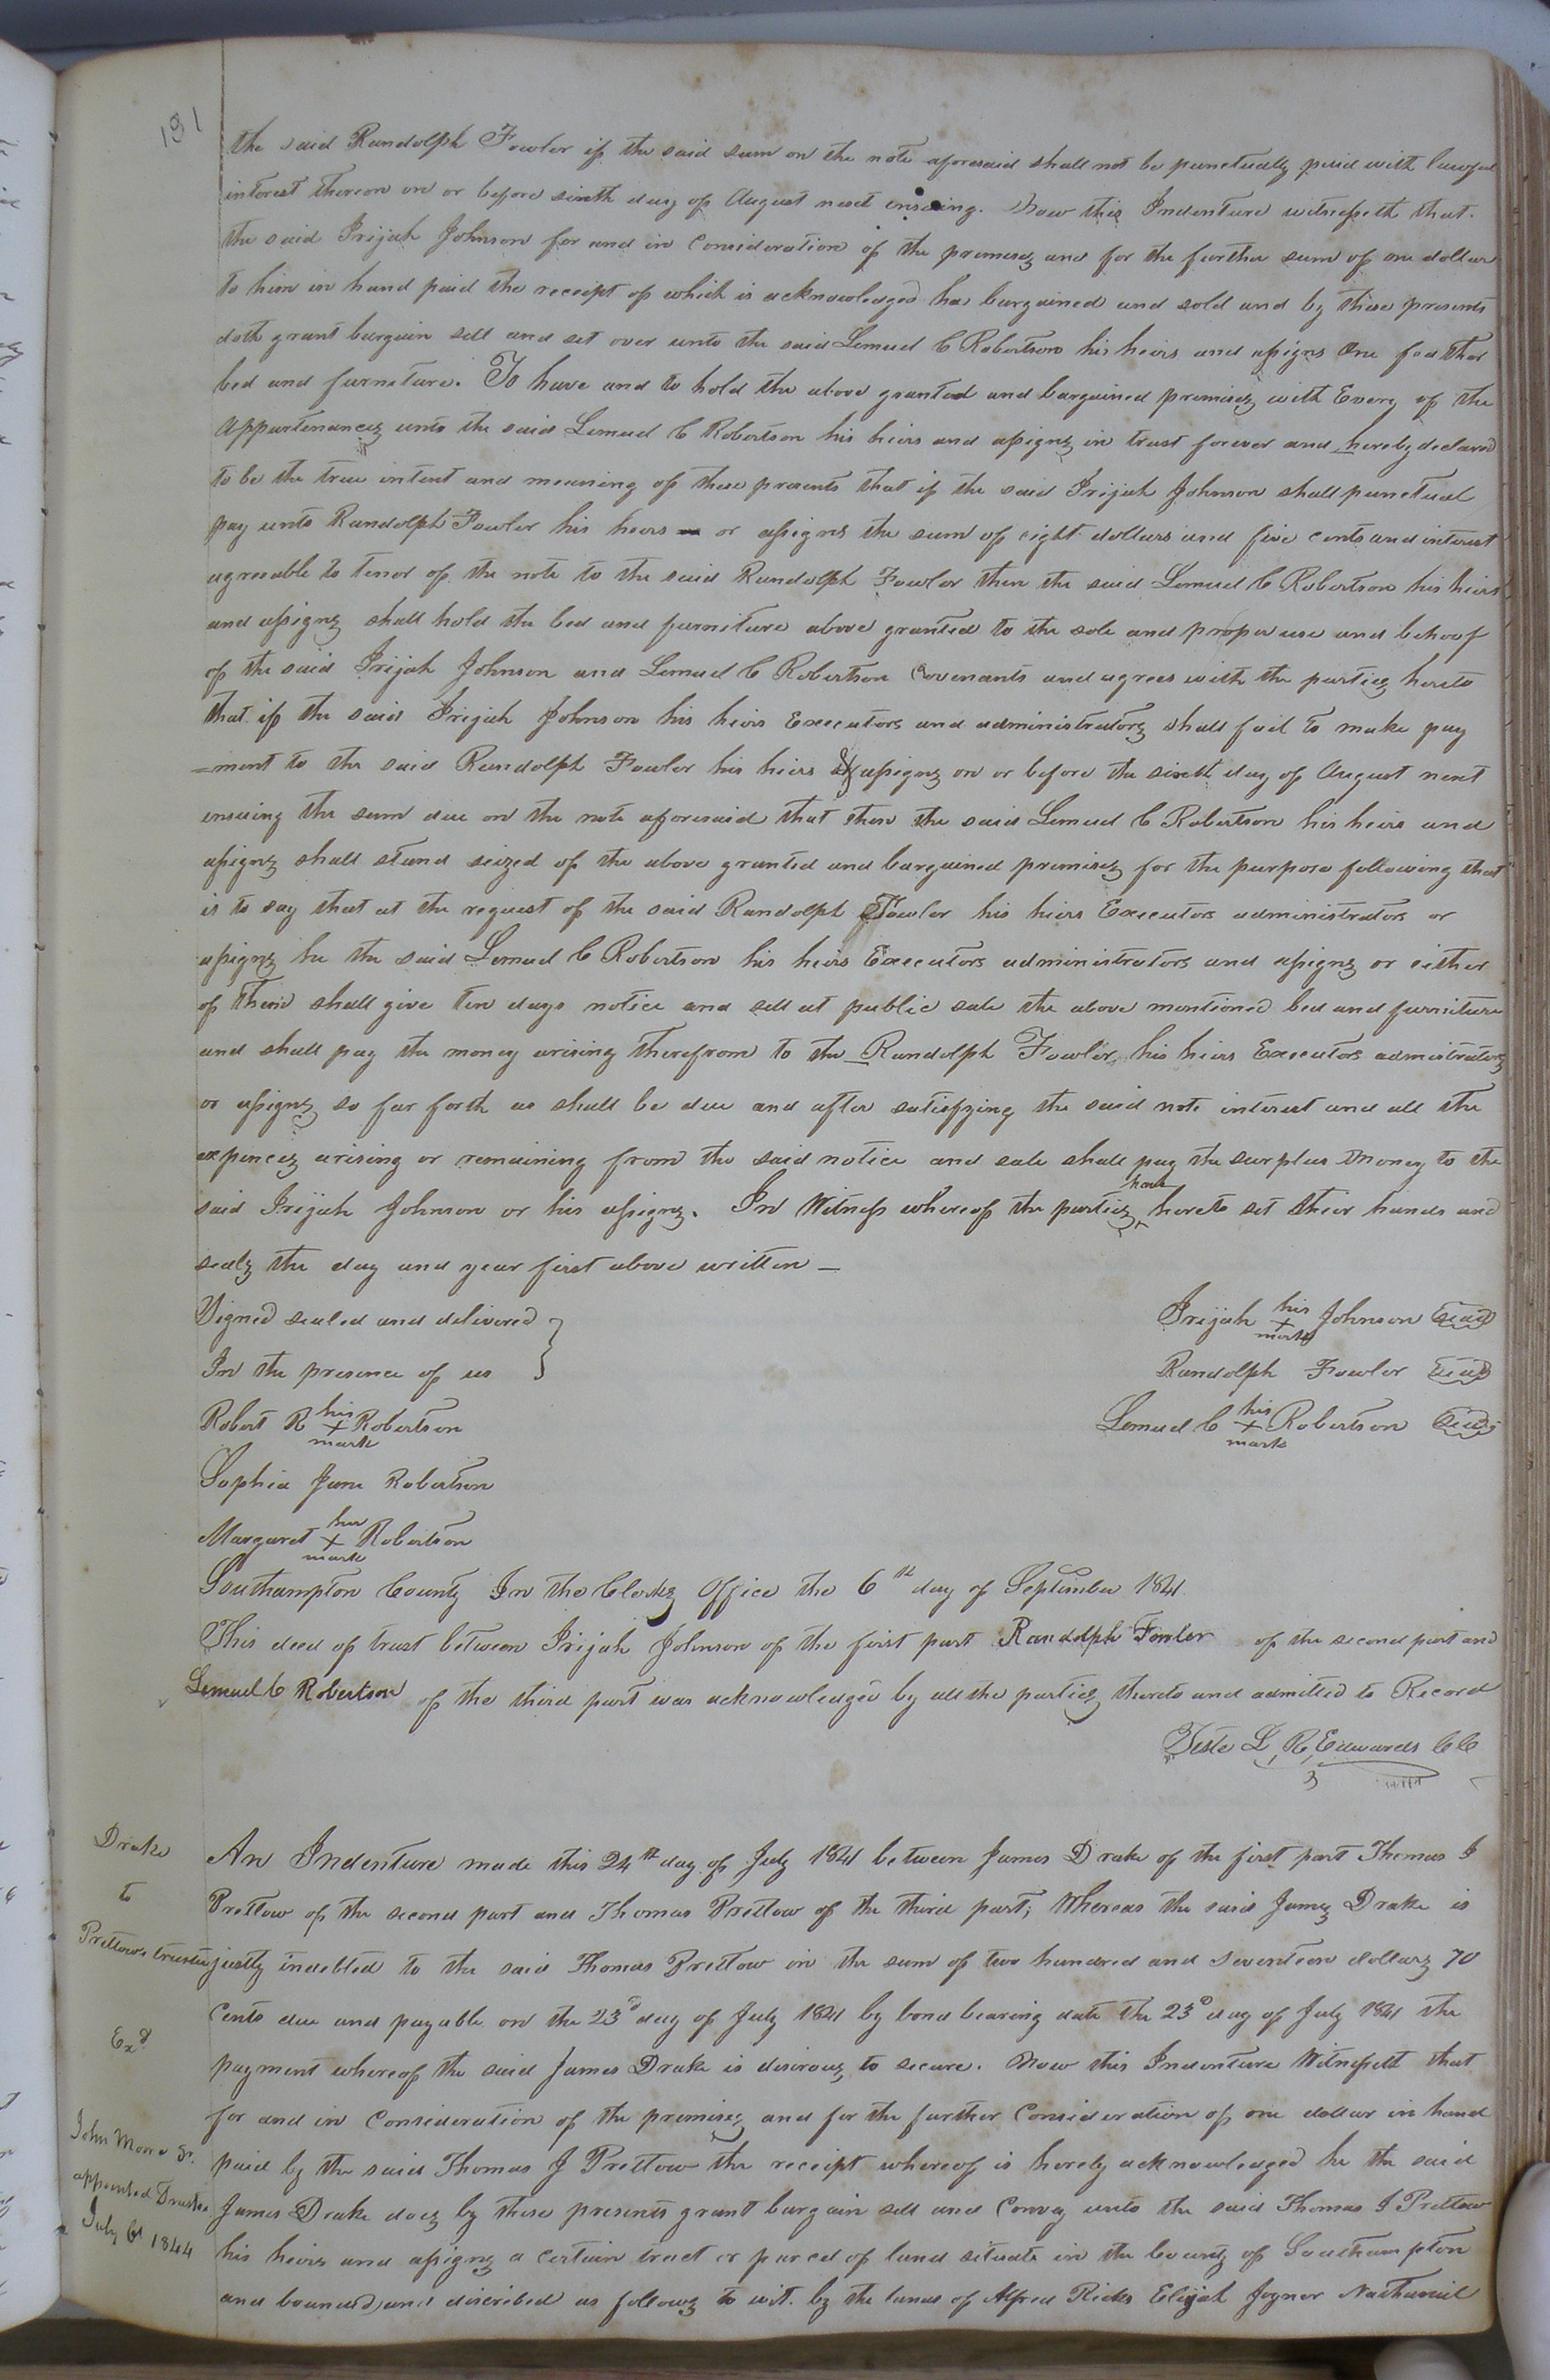 191
the said Randolph Fowler if the said sum on the note aforesaid shall not be punctually paid with lawful
interest thereon on or before sixth day of August next ensuing. Now this Indenture witnesseth that.
the said Irijah Johnson for and in Consideration of the premises and for the further sum of one dollar
to him in hand paid the receipt of which is acknowledged has bargained and sold and by these presents
doth grant bargain sell and set over unto the said Lemuel C Robertson his heirs and assigns One feather
bed and furniture. To have and to hold the above granted and bargained premises with Every of the
Appurtenances unto the said Lemuel C Robertson his heirs and assigns in trust forever and hereby declared
to be the true intent and meaning of these presents that if the said Irijah Johnson shall punctual
pay unto Randolph Fowler his heirs or assigns the sum of eight dollars and five cents and interest
agreeable to tenor of the note to the said Randolph Fowler then the said Lemuel C Robertson his heirs
and assigns shall hold the bed and furniture above granted to the sole and proper use and behoof
of the said Irijah Johnson and Lemuel C Robertson Covenants and agrees with the parties hereto
that if the said Irijah Johnson his heirs Executors and administrators shall fail to make pay
=ment to the said Randolph Fowler his heirs assigns on or before the sixth day of August next
ensuing the sum due on the note aforesaid that then the said Lemuel C Robertson his heirs and
assigns shall stand seized of the above granted and bargained premises for the purpose following that
is to say that at the request of the said Randolph Fowler his heirs Executors administrators or
assigns he the said Lemuel C Robertson his heirs Executors administrators and assigns or either
of them shall give ten days notice and sell at public sale the above mentioned bed and furniture
and shall pay the money arising therefrom to the Randolph Fowler, his heirs Executors admistrators
or assigns so far forth as shall be due and after satisfying the said note interest and all the
expences arising or remaining from the said notice and sale shall pay the surplus money to the
said Irijah Johnson or his assigns. In Witness whereof the parties have hereto set their hands and
seals the day and year first above written —
Signed sealed and delivered }
In the presence of us
Irijah his X mark Johnson Seal
Randolph Fowler Seal
Lemuel C his X mark Robertson Seal
Robert R his X mark Robertson
Sophia Jane Robertson
Margaret her X mark Robertson
Southampton County In the Clerks Office the 6th day of September 1841
This deed of trust between Irijah Johnson of the first part Randolph Fowler of the second part and
Lemuel C Robertson of the third part was acknowledged by all the parties thereto and admitted to Record
Teste L, R, Edwards CC
Drake
to
Pretlow's trustee
Exd
John Moore Sr.
appointed Trustee
July 6t 1844
An Indenture made this 24th day of July 1841 between James Drake of the first part Thomas J
Pretlow of the second part and Thomas Pretlow of the third part; Whereas the said James Drake is
justly indebted to the said Thomas Pretlow in the sum of two hundred and seventeen dollars 70
Cents due and payable on the 23d day of July 1841 by bond bearing date the 23d day of July 1841 the
payment whereof the said James Drake is desirous to secure. Now this Indenture Witnesseth that
for and in Consideration of the premises and for the further Consideration of one dollar in hand
paid by the said Thomas J Pretlow the receipt whereof is hereby acknowledged he the said
James Drake does by these presents grant bargain sell and Convey unto the said Thomas J Pretlow
his heirs and assigns a certain tract or parcel of land situate in the County of Southampton
and bounded and discribed as follows to wit. by the lands of Alfred Ricks Elijah Joyner Nathaniel